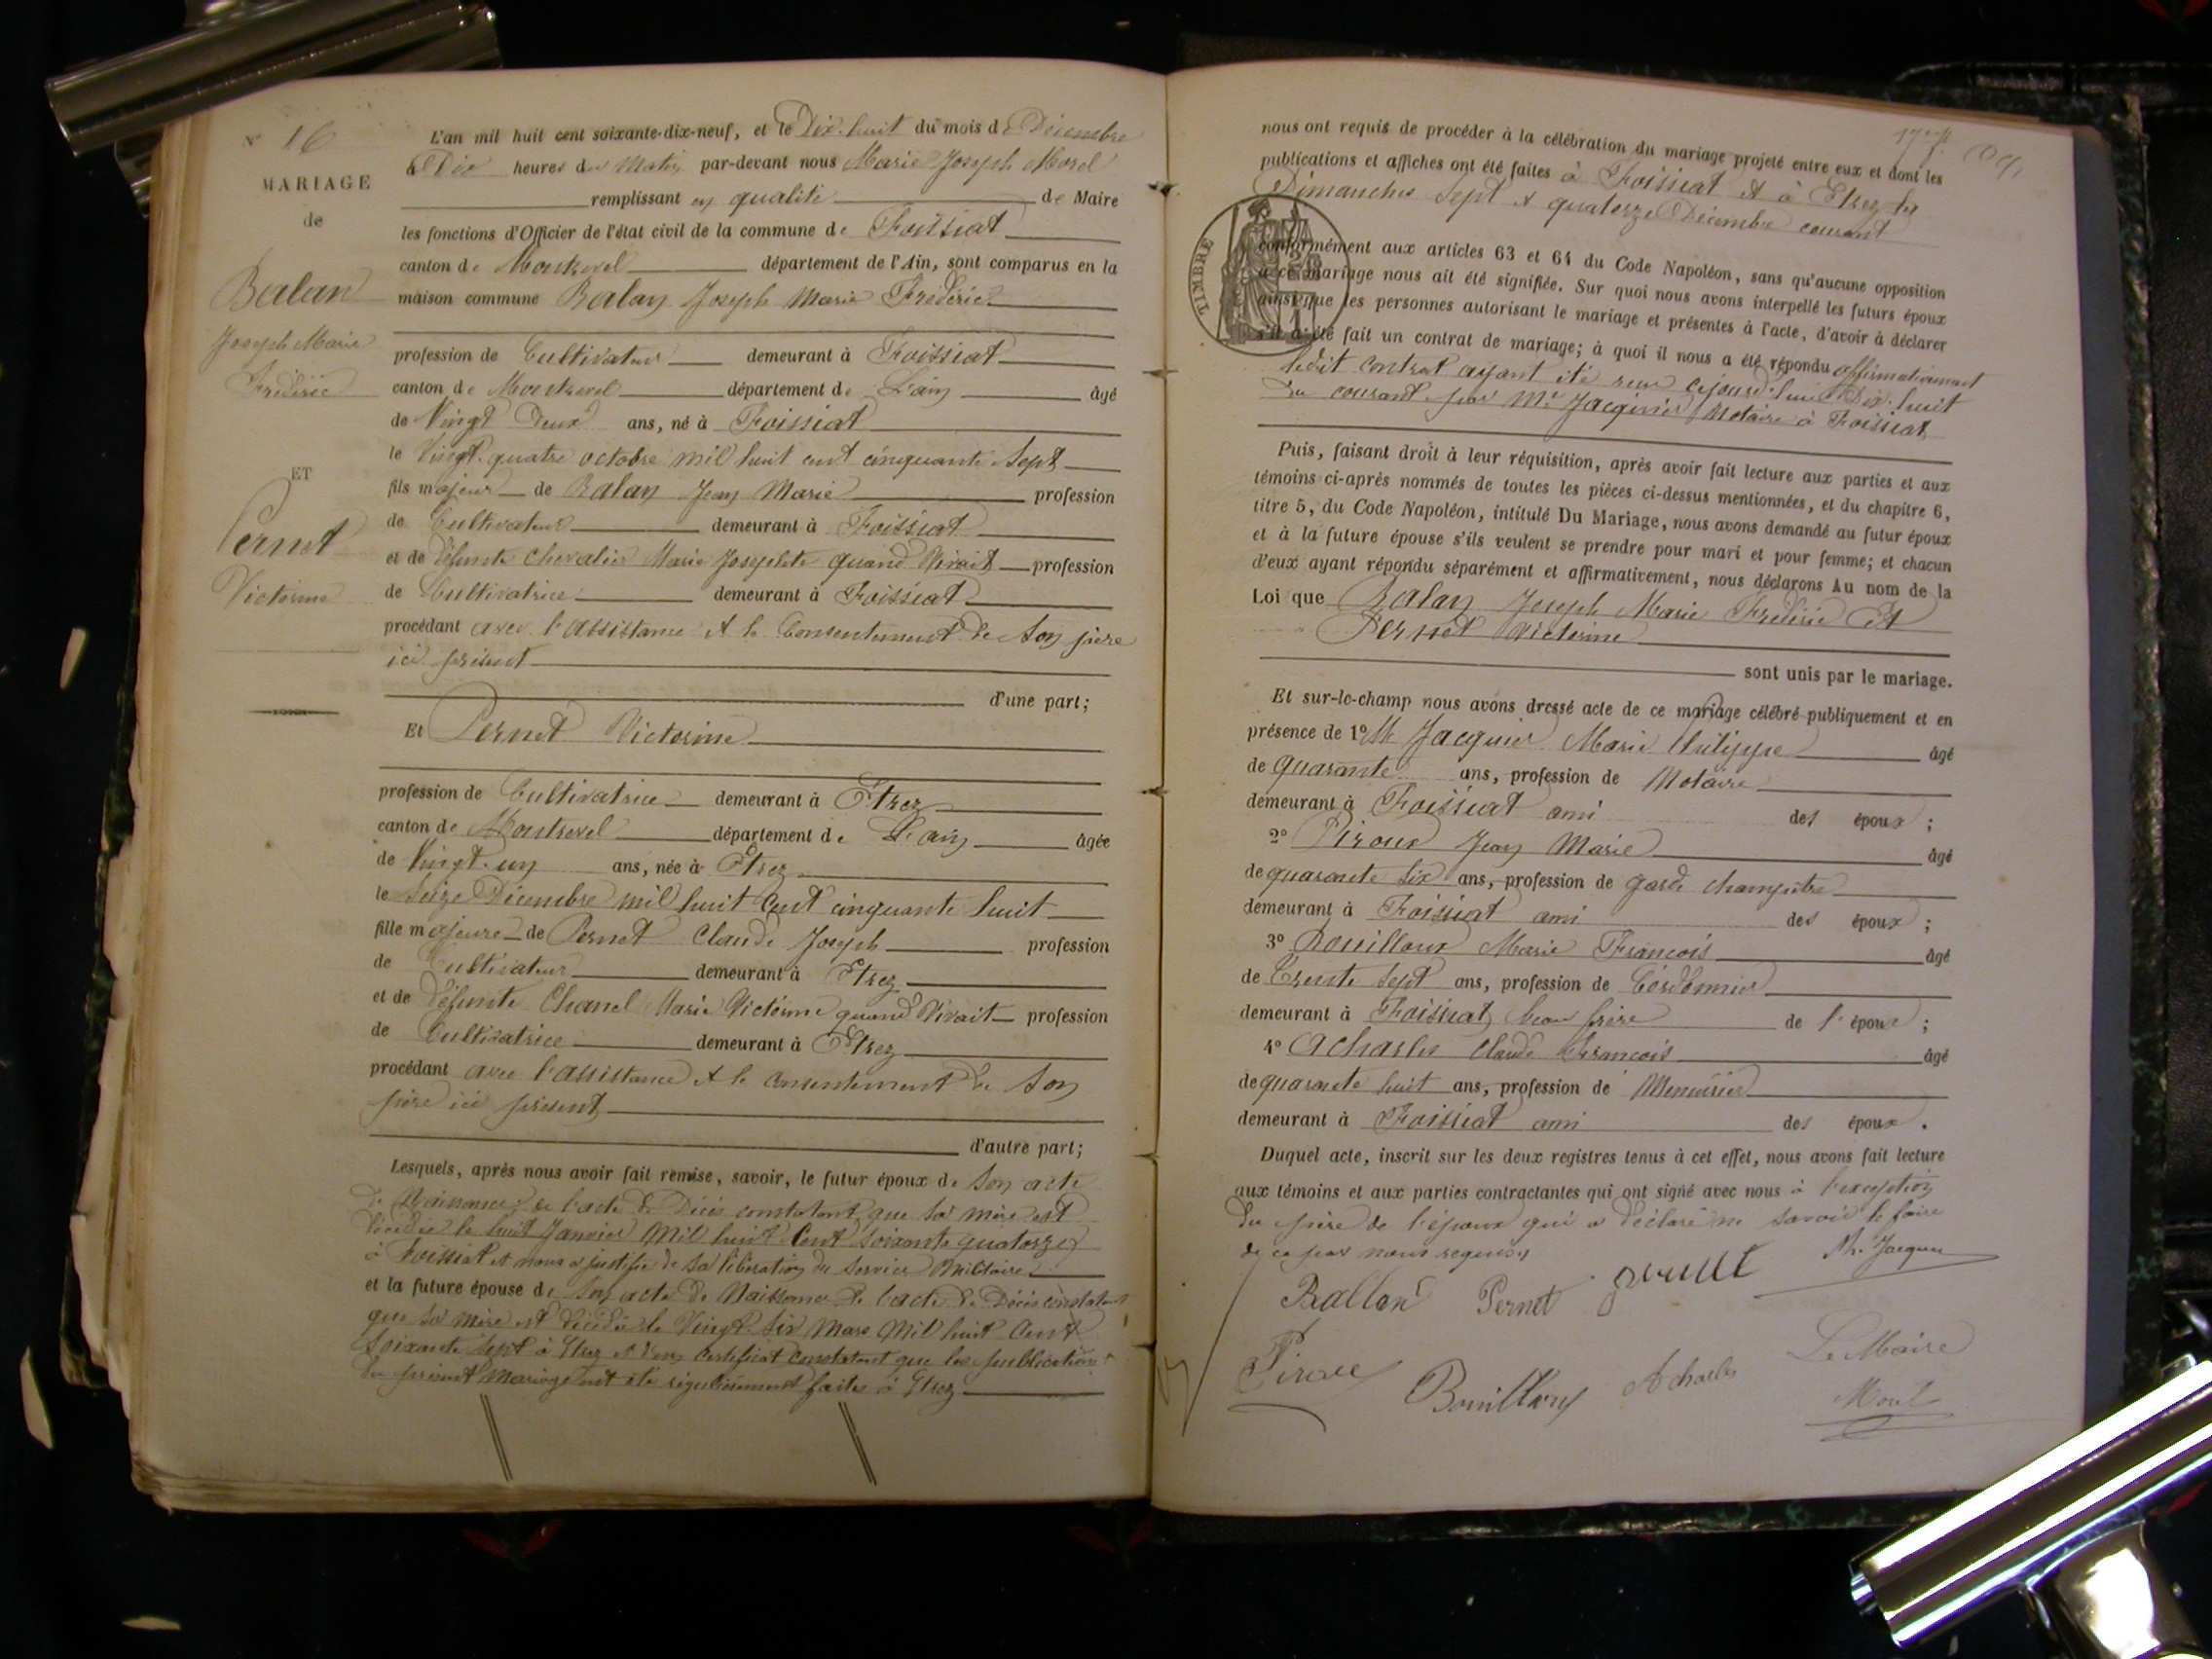 N° 16
MARIAGE
de
Balan
Joseph Marie
Frédéric
ET
Pernet
Victorine
L'an mil huit cent soixante-dix-neuf, et le Dix-huit du mois de Décembre
à Dix heures du Matin par-devant nous Marie Joseph Morel
remplissant en qualité de Maire
les fonctions d'Officier de l'état civil de la commune de Foissiat
canton de Montrevel département de l'Ain, sont comparus en la
maison commune Balan Joseph Marie Frédéric
profession de Cultivateur demeurant à Foissiat
canton de Montrevel département de L'ain âgé
de Vingt Deux ans, né à Foissiat
le Vingt-quatre octobre mil huit cent cinquante Sept
fils majeur de Balan Jean Marie profession
de Cultivateur demeurant à Foissiat
et de défunte Chevalier Marie Josephte quand Vivait profession
de Cultivatrice demeurant à Foissiat
procédant avec l'assistance et le Consentement de Son père
ici présent
d'une part;
Et Pernet Victorine
profession de Cultivatrice demeurant à Etrez
canton de Montrevel département de L'ain âgée
de Vingt-un ans, née à Etrez
le Seize Décembre mil huit Cent cinquante huit
fille majeure de Pernet Claude Joseph profession
de Cultivateur demeurant à Etrez
et de défunte Chanel Marie Victorine quand Vivait profession
de Cultivatrice demeurant à Etrez
procédant avec l'assistance et le consentement de Son
père ici présent
d'autre part;
Lesquels, après nous avoir fait remise, savoir, le futur époux de Son acte
de Naissance, de l'acte de Décès constatant que Sa mère est
décédée le huit Janvier Mil huit Cent Soixante quatorze
à Foissiat et nous a justifié de Sa libération du Service Militaire
et la future épouse de Son acte de Naissance de l'acte de Décès constatant
que Sa mère est décédée le Vingt-Six Mars Mil huit Cent
Soixante Sept à Etrez et d'un Certificat Constatant que les publications
du présent Mariage ont été régulièrement faites à Etrez
nous ont requis de procéder à la célébration du mariage projeté entre eux et dont les
publications et affiches ont été faites à Foissiat et à Etrez les
Dimanches Sept et quatorze Décembre courant
TIMBRE
conformément aux articles 63 et 64 du Code Napoléon, sans qu'aucune opposition
à ce mariage nous ait été signifiée. Sur quoi nous avons interpellé les futurs époux
ainsi que les personnes autorisant le mariage et présentes à l'acte, d'avoir à déclarer
s'il a été fait un contrat de mariage; à quoi il nous a été répondu affirmativement
ledit contrat ayant été reçu cejourd'hui Dix-huit
du courant par Me Jacquier Notaire à Foissiat
Puis, faisant droit à leur réquisition, après avoir fait lecture aux parties et aux
témoins ci-après nommés de toutes les pièces ci-dessus mentionnées, et du chapitre 6,
titre 5, du Code Napoléon, intitulé Du Mariage, nous avons demandé au futur époux
et à la future épouse s'ils veulent se prendre pour mari et pour femme; et chacun
d'eux ayant répondu séparément et affirmativement, nous déclarons Au nom de la
Loi que Balan Joseph Marie Frédéric Et
Pernet Victorine
sont unis par le mariage.
Et sur-le-champ nous avons dressé acte de ce mariage célébré publiquement et en
présence de 1° Me Jacquier Marie Philippe âgé
de quarante ans, profession de Notaire
demeurant à Foissiat ami des époux;
2° Piroux Jean Marie âgé
de quarante Six ans, profession de garde champêtre
demeurant à Foissiat ami des époux;
3° Bouilloux Marie François âgé
de Trente Sept ans, profession de Cordonnier
demeurant à Foissiat beau frère de l'époux;
4° Acharles Claude François âgé
de quarante huit ans, profession de Menuisier
demeurant à Foissiat ami des époux.
Duquel acte, inscrit sur les deux registres tenus à cet effet, nous avons fait lecture
aux témoins et aux parties contractantes qui ont signé avec nous à l'exception
du père de l'époux qui a déclaré ne savoir le faire
de ce par nous requis.
Ballan Pernet Ph. Jacquier
Piroux Bouilloux Acharles Le Maire
Morel